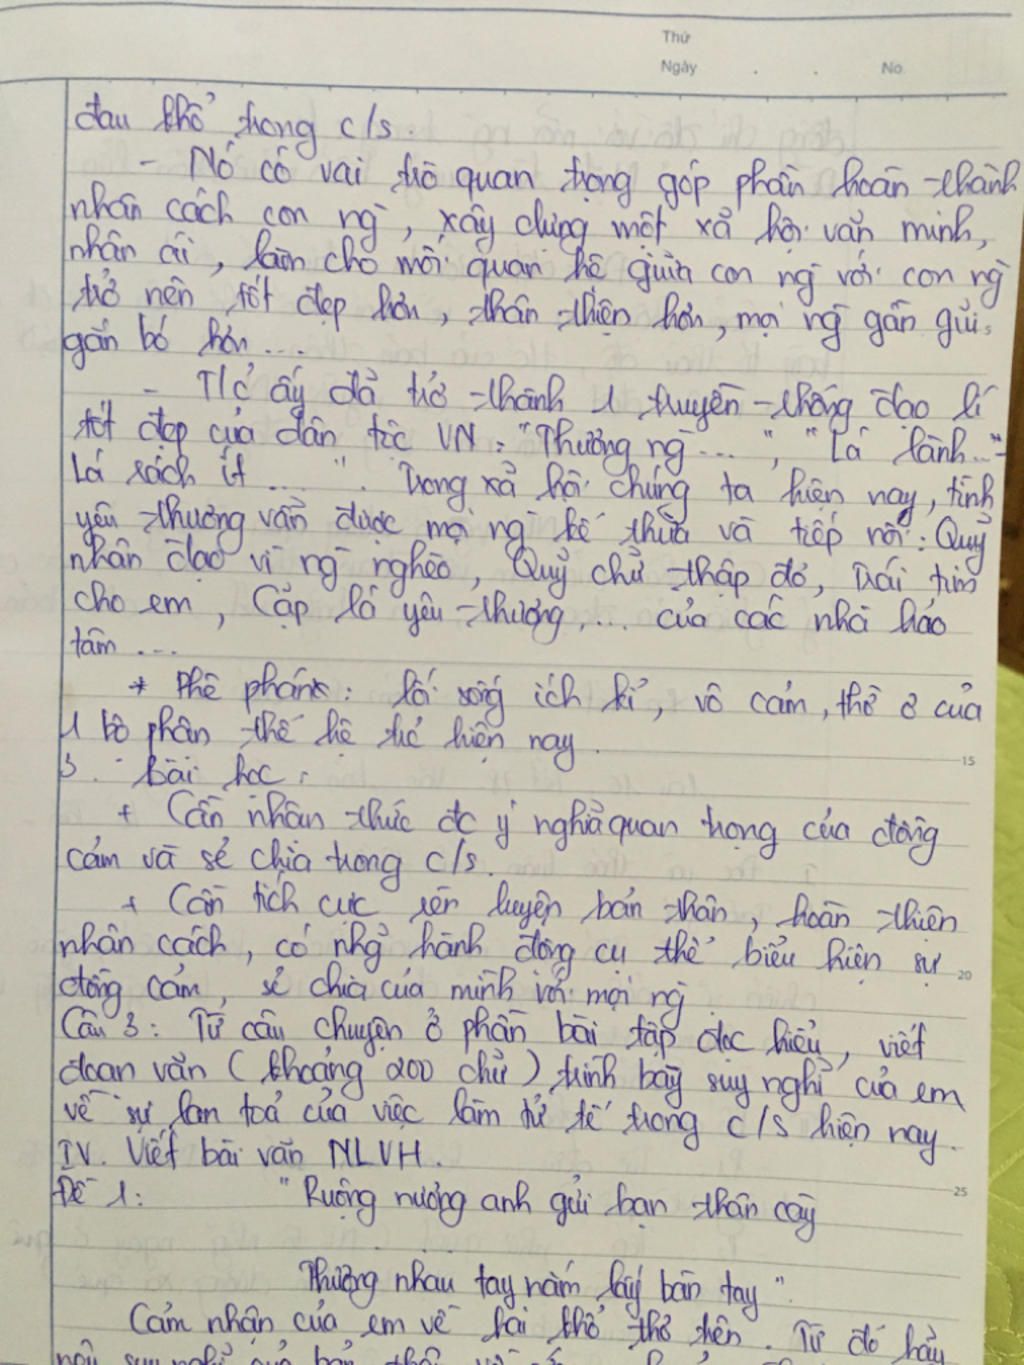 Thứ
Ngày . . No.
đau khổ trong c/s.
- Nó có vai trò quan trọng góp phần hoàn thành
nhân cách con ng`, xây dựng một xã hội văn minh,
nhân ái, làm cho mối quan hệ giữa con ng` với con ng`
trở nên tốt đẹp hơn, thân thiện hơn, mọi ng` gần gũi,
gắn bó hơn...
- T/c ấy đã trở thành 1 truyền thống đạo lí
tốt đẹp của dân tộc VN: "Thương ng`...", "Lá lành..."
Lá rách ít ...". Trong xã hội chúng ta hiện nay, tình
yêu thương vẫn được mọi ng` kế thừa và tiếp nối: Quỹ
nhân đạo vì ng` nghèo, Quỹ chữ thập đỏ, Trái tim
cho em, Cặp lá yêu thương,... của các nhà hảo
tâm ...
* Phê phán: lối sống ích kỉ, vô cảm, thờ ơ của
1 bộ phận thế hệ trẻ hiện nay.
15
3. Bài học:
+ Cần nhận thức đc ý nghĩa quan trọng của đồng
cảm và sẻ chia trong c/s.
+ Cần tích cực rèn luyện bản thân, hoàn thiện
nhân cách, có nhg~ hành động cụ thể biểu hiện sự
20
đồng cảm, sẻ chia của mình với mọi ng`
Câu 3: Từ câu chuyện ở phần bài tập đọc hiểu, viết
đoạn văn (khoảng 200 chữ) trình bày suy nghĩ của em
về sự lan toả của việc làm tử tế trong c/s hiện nay.
IV. Viết bài văn NLVH.
Đề 1: "Ruộng nương anh gửi bạn thân cày
25
Thương nhau tay nắm lấy bàn tay"
Cảm nhận của em về hai khổ thơ trên. Từ đó hãy